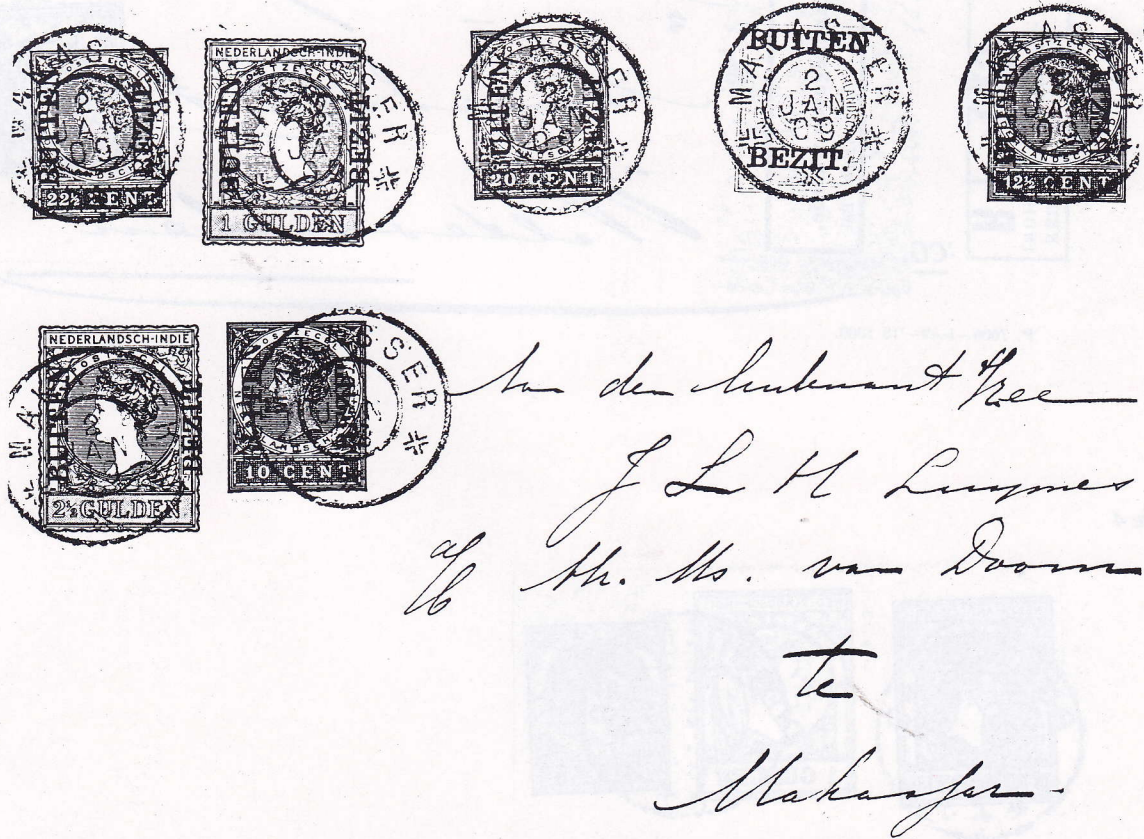 MAKASSER 2 JAN 09
BUITEN BEZIT.
22½ CENT
NEDERLANDSCH-INDIE
POSTZEGEL
MAKASSER JAN
BUITEN BEZIT.
1 GULDEN
MAKASSER 2 JAN 09
BUITEN BEZIT.
20 CENT
MAKASSER 2 JAN 09
BUITEN
BEZIT.
MAKASSER 2 JAN 09
BUITEN BEZIT.
12½ CENT
NEDERLANDSCH-INDIE
POSTZEGEL
MAKASSER 2 JAN
BUITEN BEZIT.
2½ GULDEN
POSTZEGEL
SSER
10 CENT
Aan den luitenant t/zee
J L H Luymes
a/b Hr. Ms. van Doorn
te
Makassar.